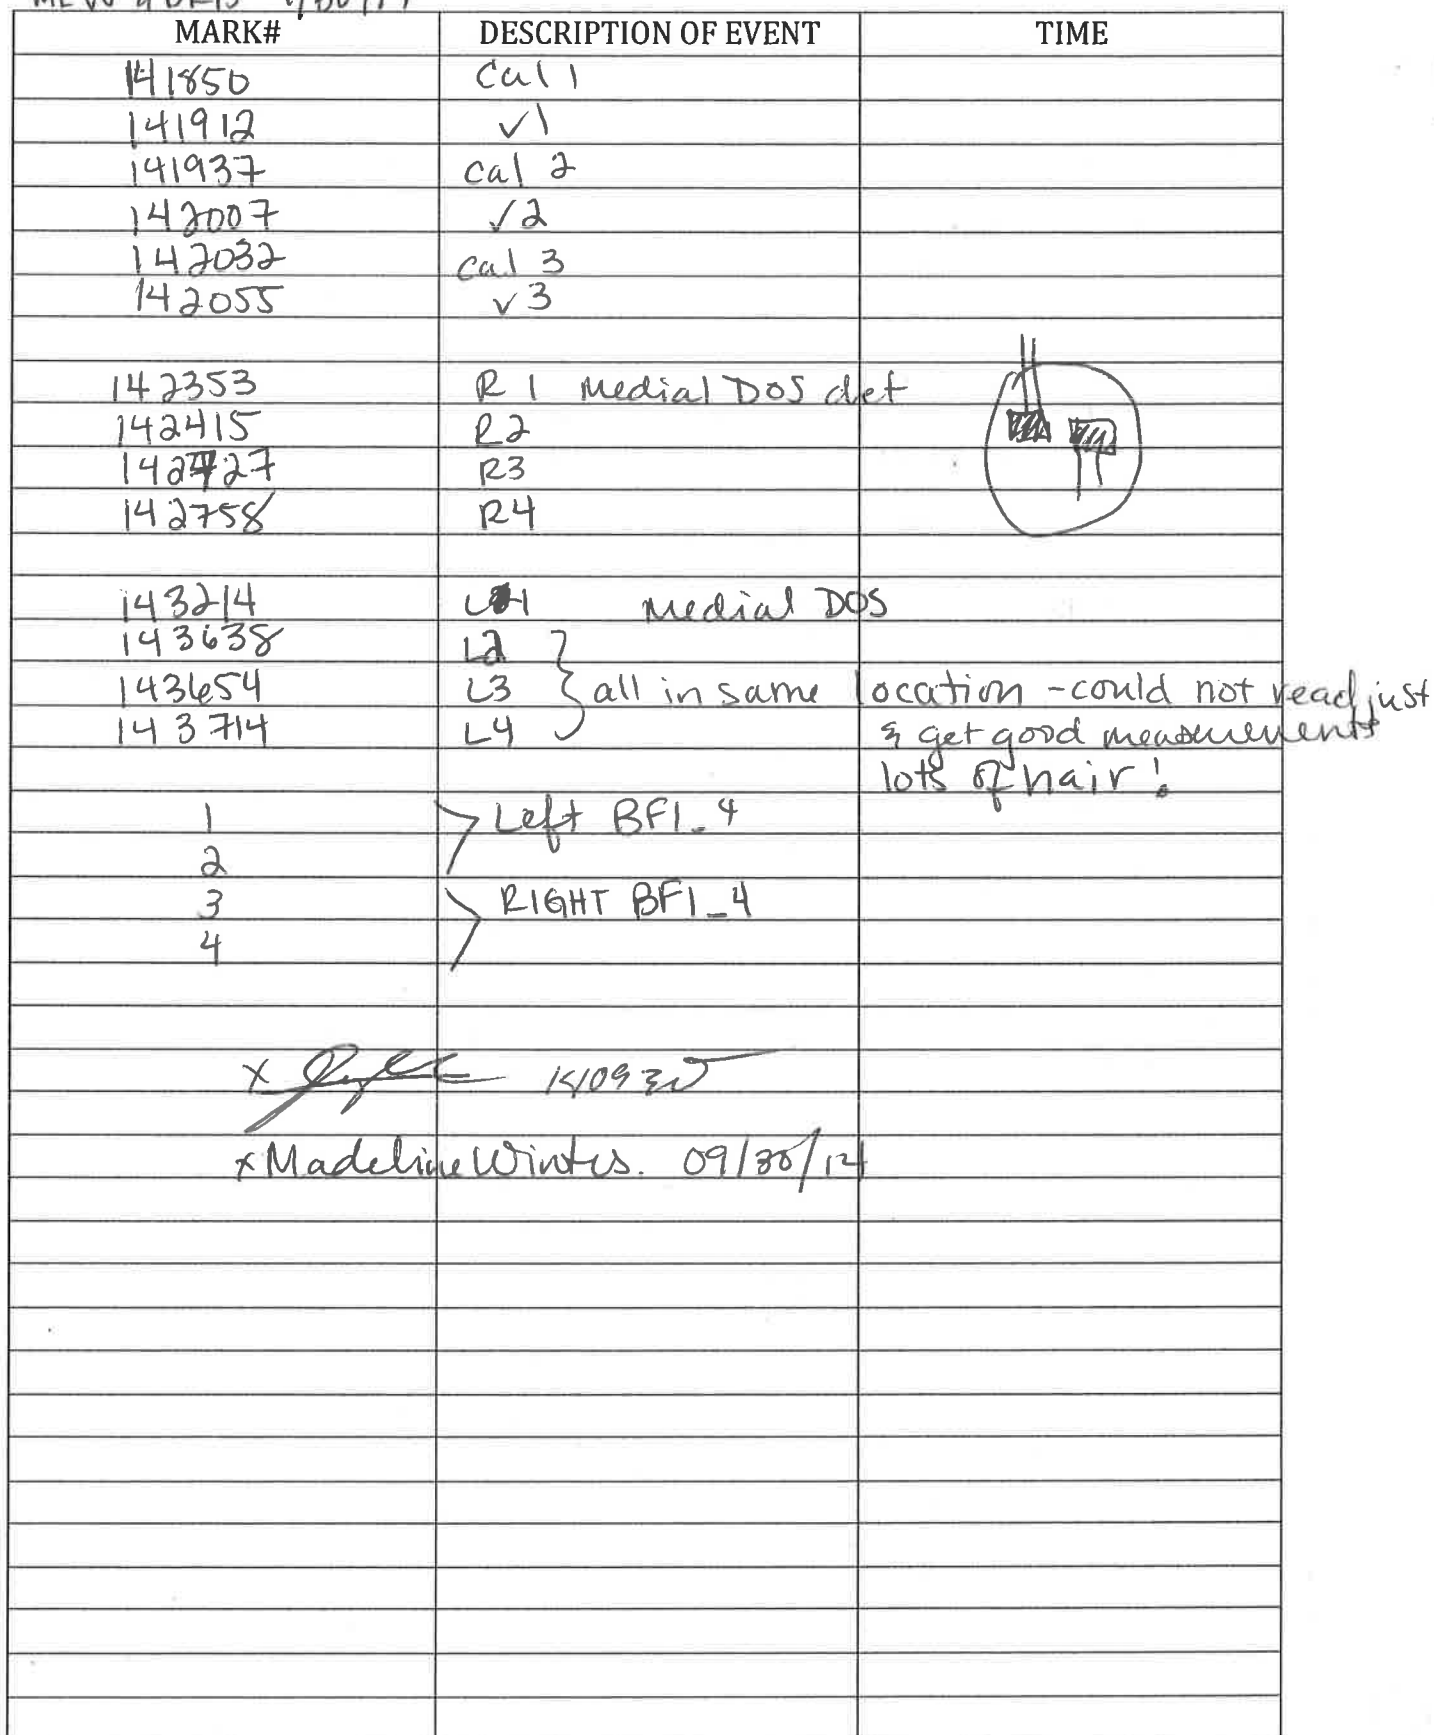 MARK# DESCRIPTION OF EVENT TIME
141850 Cal 1
141912 ✓1
141937 cal 2
142007 ✓2
142032 cal 3
142055 ✓3
142353 R 1 Medial DOS det
142415 R2
142727 R3
142758 R4
143214 L1 Medial DOS
143638 L2
143654 L3 } all in same location - could not readjust
143714 L4 & get good measurements
lots of hair!
1 > Left BFI_4
2
3 > RIGHT BFI_4
4
x
x Madeline Winters. 09/30/14